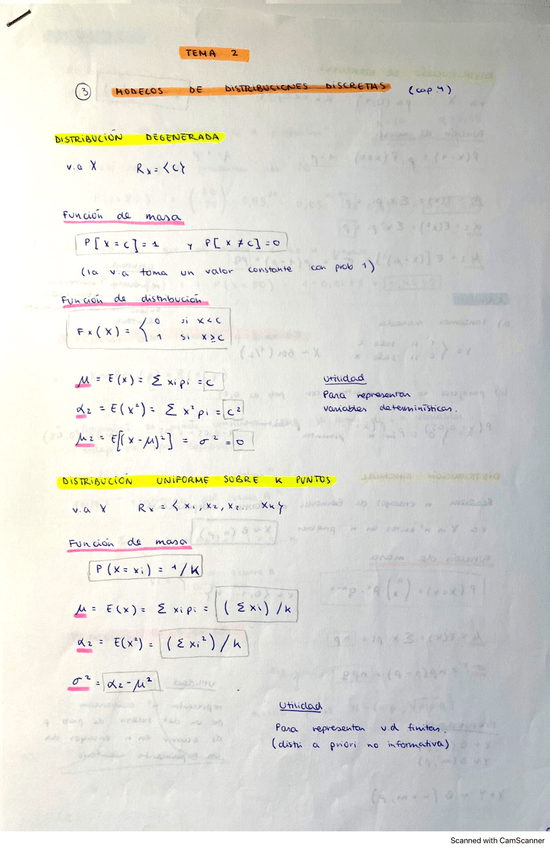 TEMA 2
③ MODELOS DE DISTRIBUCIONES DISCRETAS (cap. 4)
DISTRIBUCIÓN DEGENERADA
v.a X Rx = {c}
Función de masa
P[X = c] = 1 y P[X ≠ c] = 0
(la v a toma un valor constante con prob 1)
Función de distribución
Fx(X) = { 0 si x < c
1 si x ≥ c
μ = E(x) = Σ xi pi = c
α2 = E(x²) = Σ x² pi = c²
μ2 = E[(x - μ)²] = σ² = 0
Utilidad
Para representar
variables determinísticas.
DISTRIBUCIÓN UNIFORME SOBRE K PUNTOS
v.a X Rx = {x1, x2, x2 ... xk}
Función de masa
P(X = xi) = 1/K
μ = E(x) = Σ xi pi = (Σ xi)/k
α2 = E(x²) = (Σ xi²)/k
σ² = α2 - μ²
Utilidad
Para representar v.d finitas.
(distri a priori no informativa)
Scanned with CamScanner